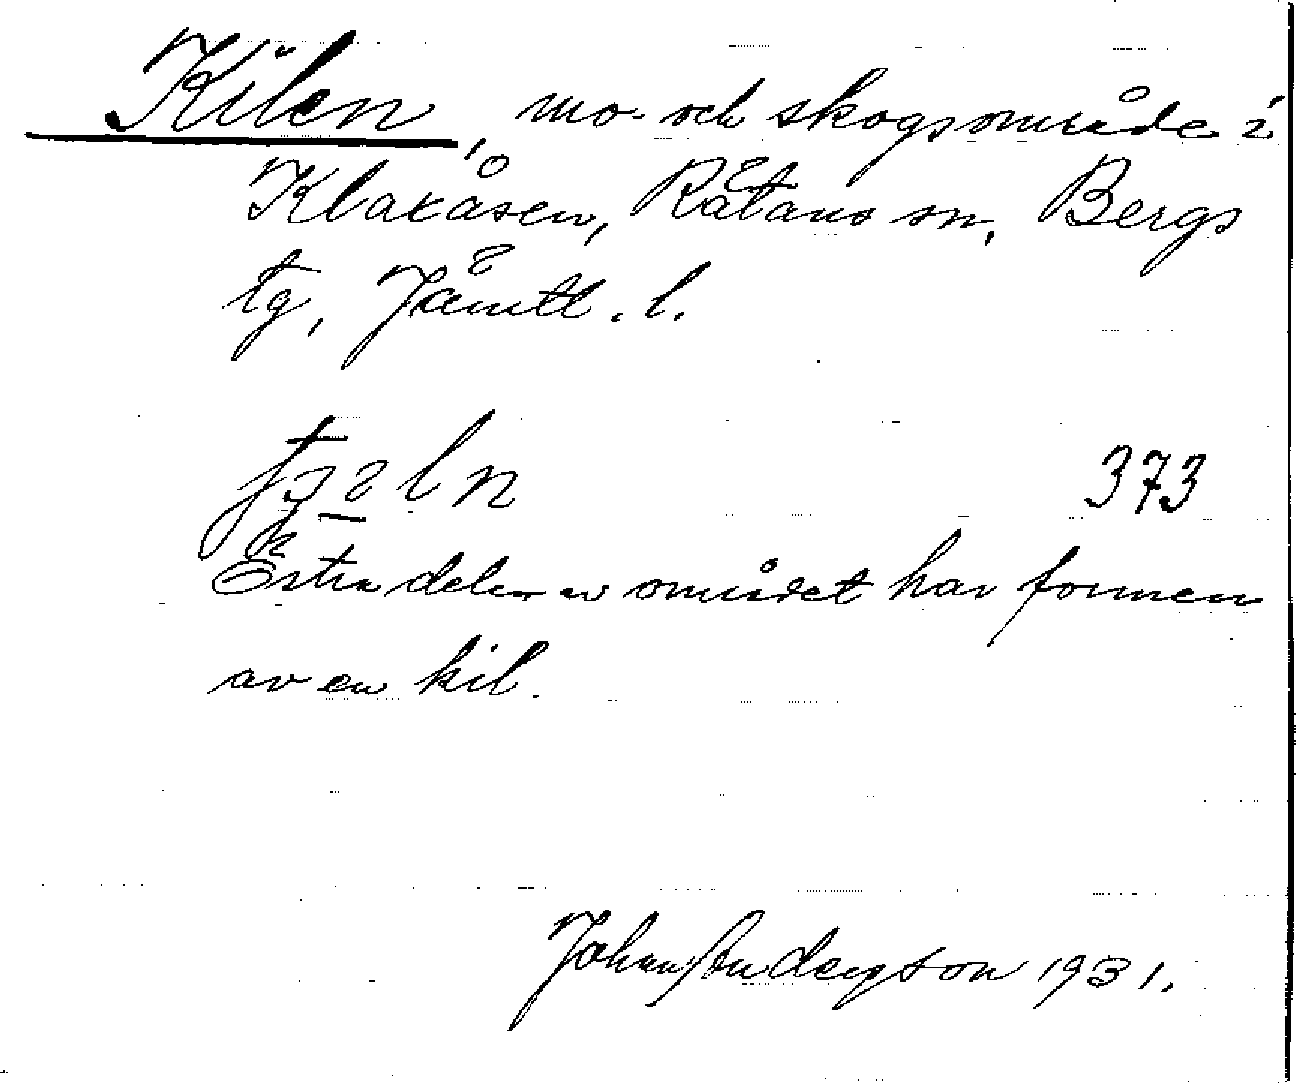 Kilen, mo- och skogsområde i
Klaxåsen, Rätans sn, Bergs
tg, Jämtl. l.
373
Östra delen av området har formen
av en kil.
Johan Anderson 1931.